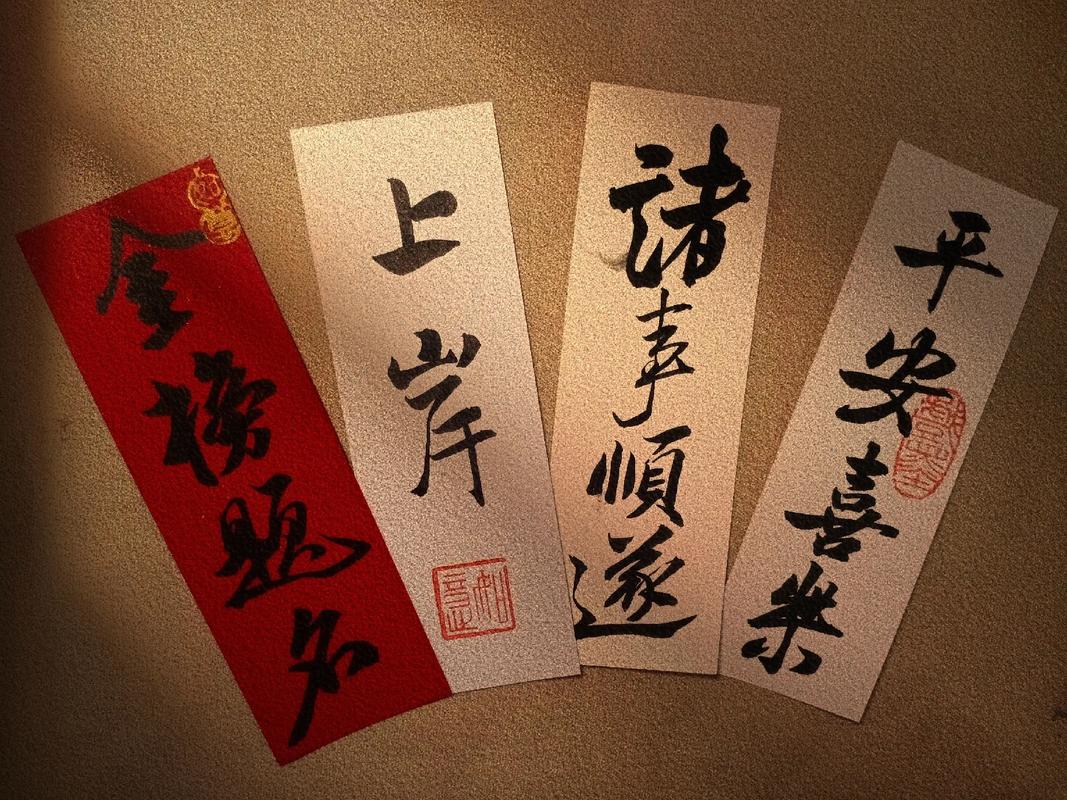 金榜題名
上岸
諸事順遂
平安喜樂